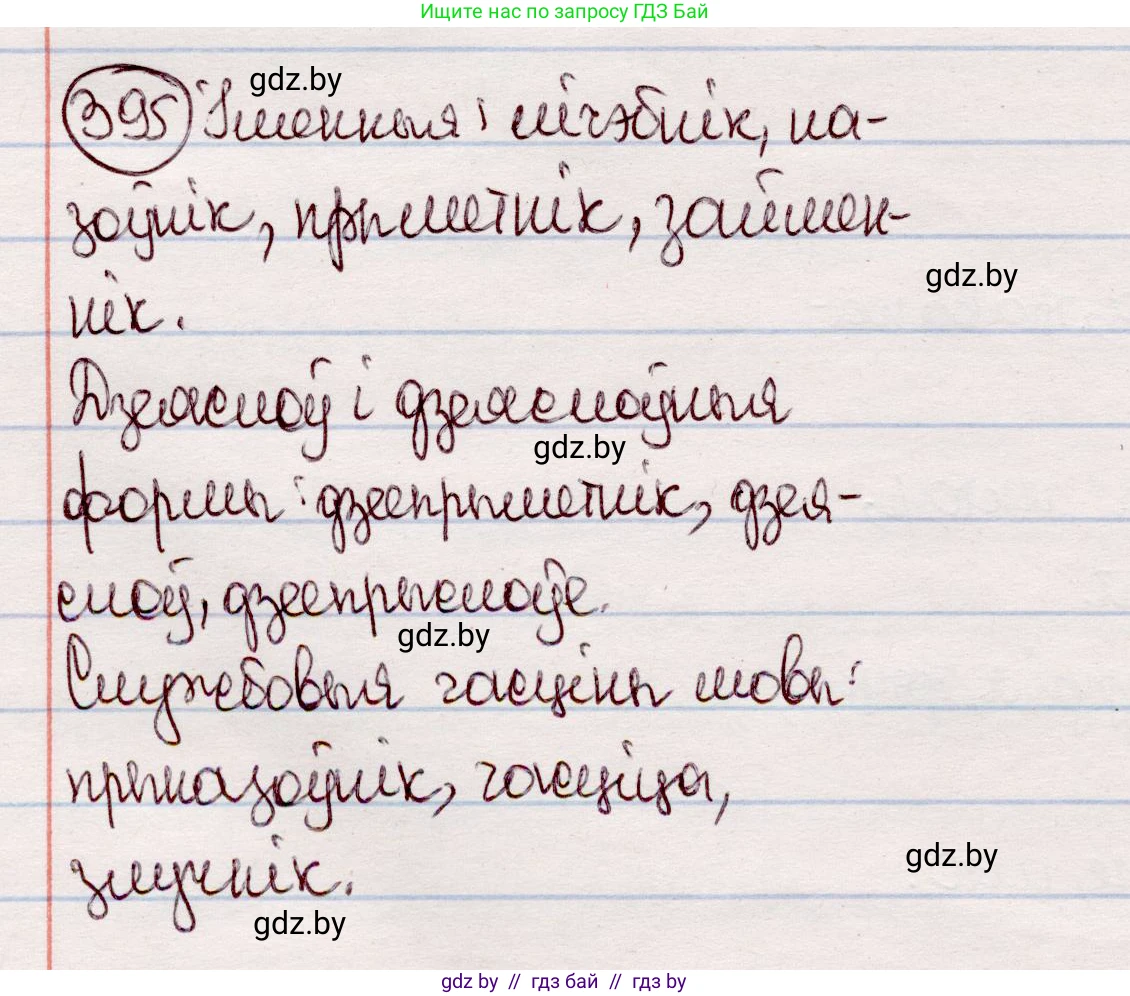 Ищите нас по запросу ГДЗ Бай
gdz.by
395 Іменныя: лічэбнік, на-
зоўнік, прыметнік, займен-
gdz.by
нік.
Дзеяслоў і дзеяслоўныя
gdz.by
формы: дзеепрыметнік, дзея-
слоў, дзеепрыслоўе.
gdz.by
Службовыя часціны мовы:
прыназоўнік, часціца,
gdz.by
злучнік.
gdz.by
gdz by // гдз бай // гдз by